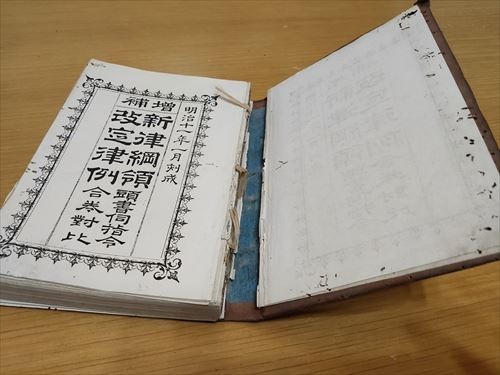 明治十一年一月刻成
增補
新律綱領頭書伺指令
改定律例合巻對比